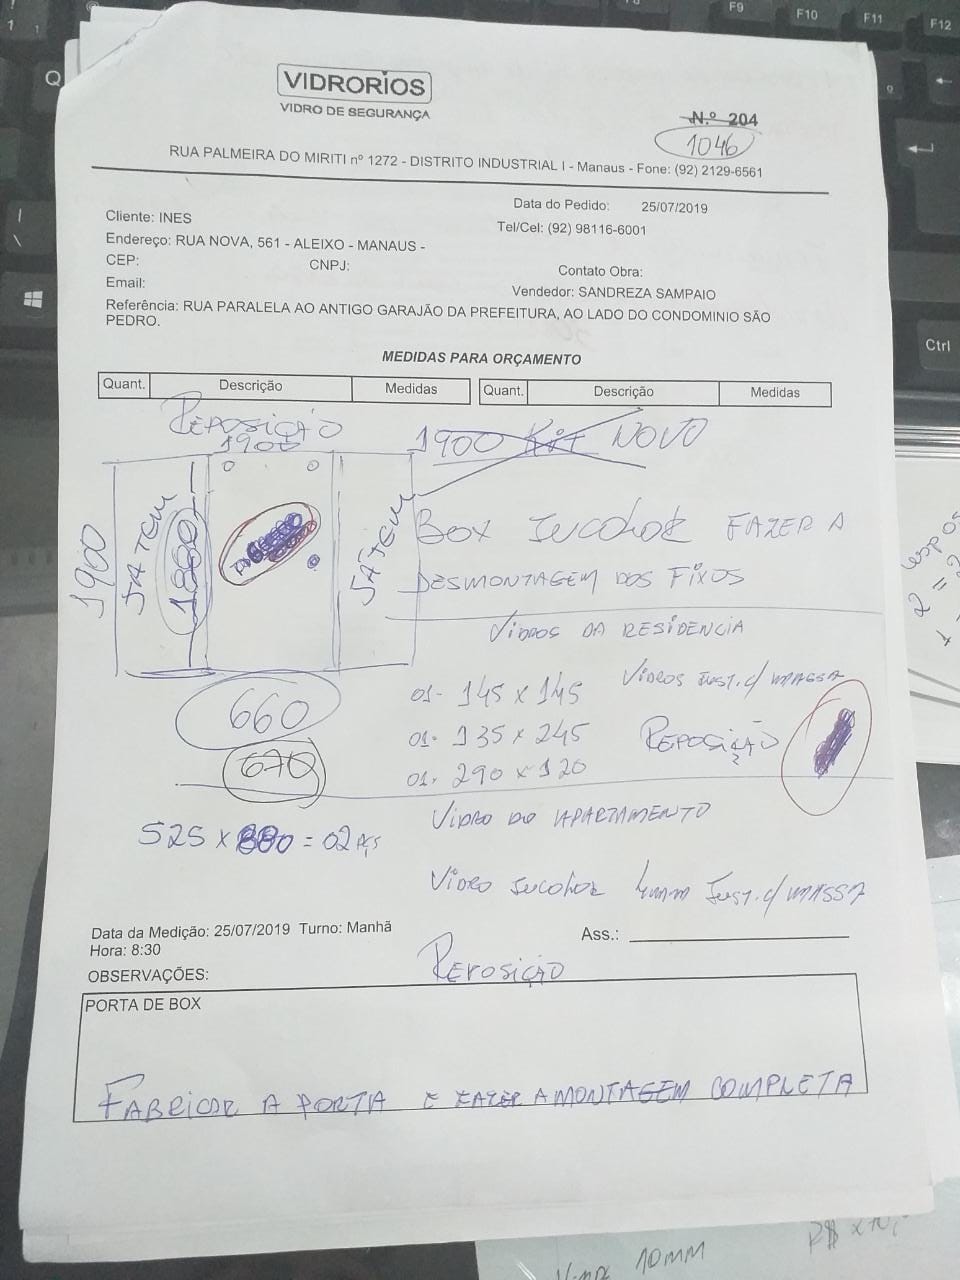 VIDRORIOS
VIDRO DE SEGURANÇA
N.º 204
1046
RUA PALMEIRA DO MIRITI nº 1272 - DISTRITO INDUSTRIAL I - Manaus - Fone: (92) 2129-6561
Data do Pedido: 25/07/2019
Cliente: INES
Tel/Cel: (92) 98116-6001
Endereço: RUA NOVA, 561 - ALEIXO - MANAUS -
CEP: CNPJ:
Contato Obra:
Email:
Vendedor: SANDREZA SAMPAIO
Referência: RUA PARALELA AO ANTIGO GARAJÃO DA PREFEITURA, AO LADO DO CONDOMINIO SÃO
PEDRO.
MEDIDAS PARA ORÇAMENTO
Quant. Descrição Medidas Quant. Descrição Medidas
REPOSIÇÃO
1900
1900 Kit NOVO
1900
JÁ TEM
1880
JÁ TEM
BOX INCOLOR FAZER A
DESMONTAGEM DOS FIXOS
VIDROS DA RESIDENCIA
660
670
01- 145 x 145
VIDROS INST. C/ MASSA
01- 135 x 245
REPOSIÇÃO
01- 290 x 120
VIDRO DO APARTAMENTO
525 x 880 = 02 PÇS
VIDRO INCOLOR 4mm INST. C/ MASSA
Data da Medição: 25/07/2019 Turno: Manhã
Hora: 8:30
Ass.:
OBSERVAÇÕES:
REPOSIÇÃO
PORTA DE BOX
FABRICAR A PORTA E FAZER A MONTAGEM COMPLETA
10MM
R$
F9
F10
F11
F12
Q
Ctrl